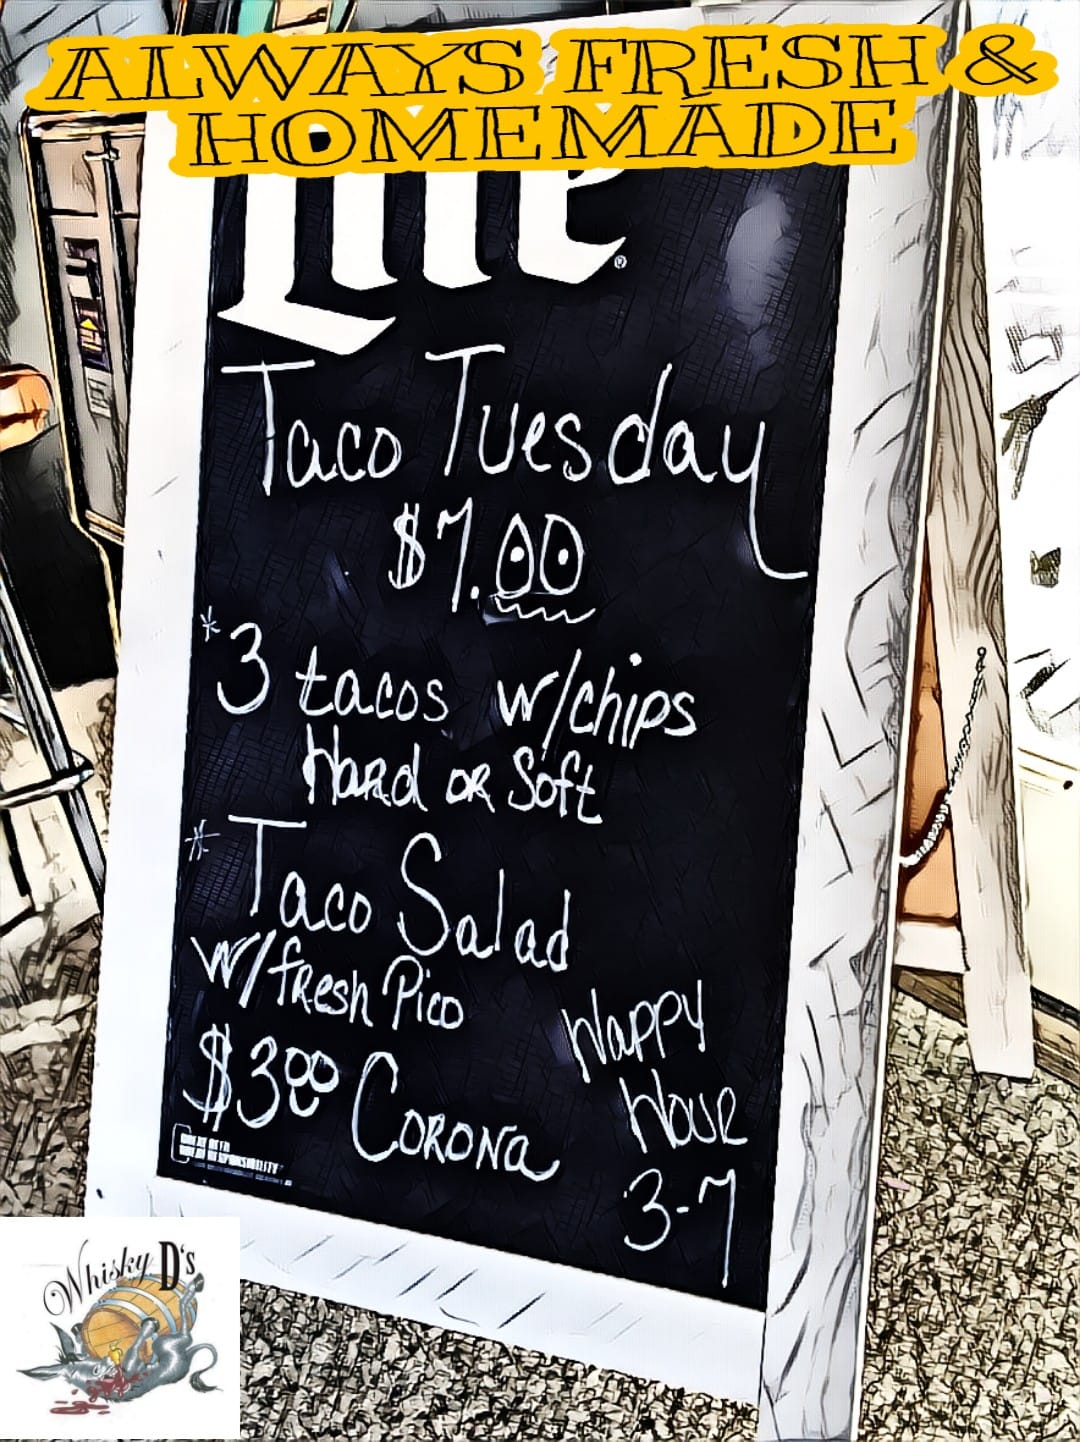 ALWAYS FRESH &
HOMEMADE
Lite®
Taco Tuesday
$7.00
*3 tacos w/chips
Hard or Soft
*Taco Salad
w/fresh Pico
$3.00 Corona
Happy
Hour
3-7
Whisky D's